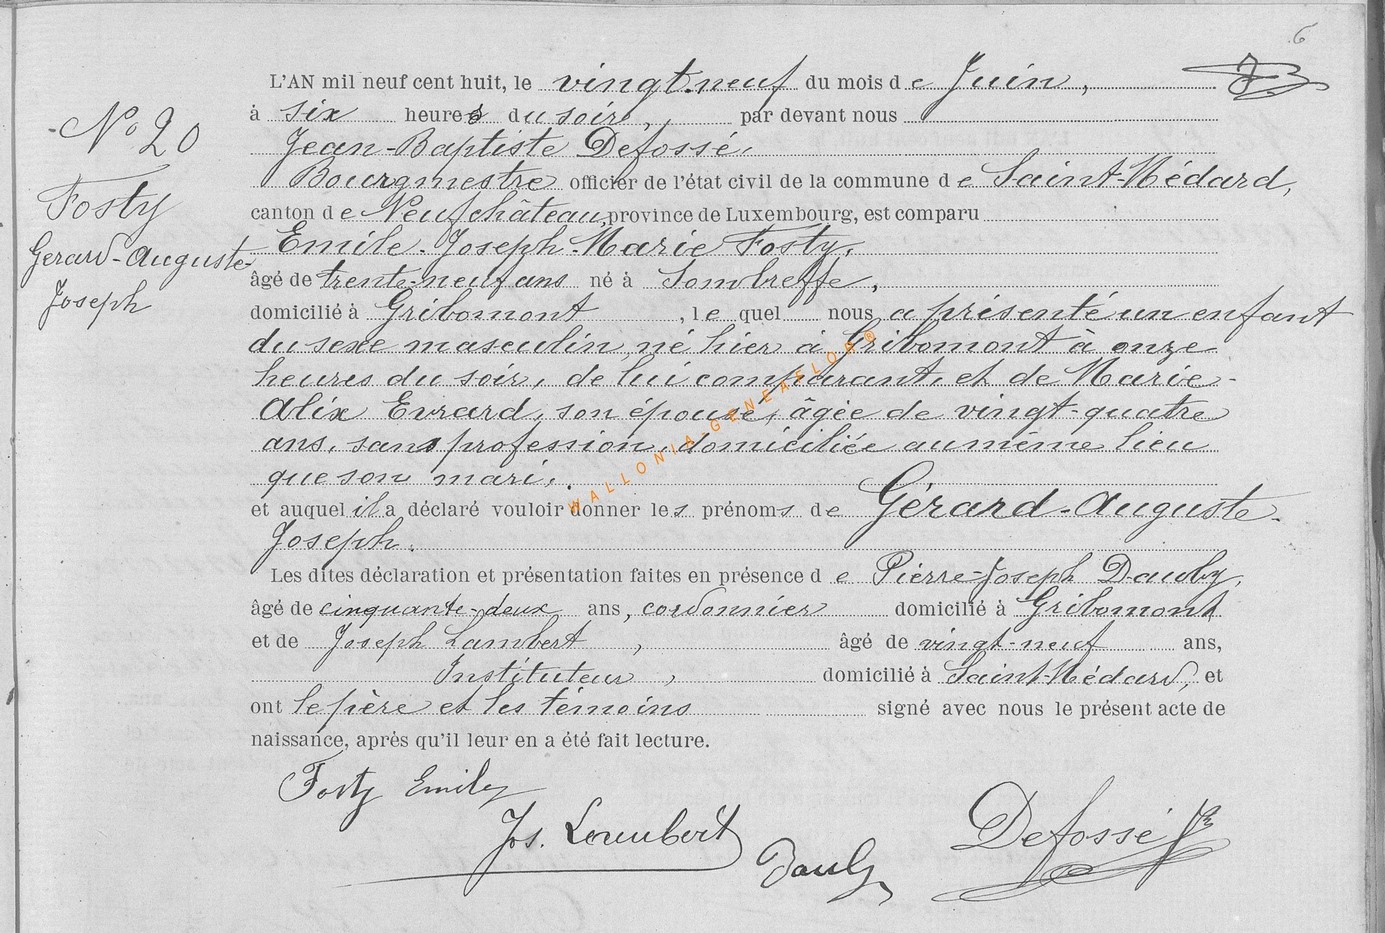 6
L'AN mil neuf cent huit, le vingt-neuf du mois de Juin,
à six heures du soir, par devant nous
Jean-Baptiste Defossé,
Bourgmestre officier de l'état civil de la commune de Saint-Médard,
canton de Neufchâteau, province de Luxembourg, est comparu
Emile-Joseph-Marie Fosty,
âgé de trente-neuf ans né à Sombreffe,
domicilié à Gribomont, lequel nous a présenté un enfant
du sexe masculin, né hier à Gribomont à onze
heures du soir, de lui comparant, et de Marie-
Alix Evrard, son épouse, âgée de vingt-quatre
ans, sans profession, domiciliée au même lieu
que son mari,.
et auquel il a déclaré vouloir donner les prénoms de Gérard-Auguste-
Joseph.
Les dites déclaration et présentation faites en présence de Pierre-Joseph Dauby,
âgé de cinquante-deux ans, cordonnier domicilié à Gribomont
et de Joseph Lambert, âgé de vingt-neuf ans,
Instituteur, domicilié à Saint-Médard, et
ont le père et les témoins signé avec nous le présent acte de
naissance, après qu'il leur en a été fait lecture.
N° 20
Fosty
Gerard-Auguste-
Joseph
Fosty Emile
Jos. Lambert
Dauby
Defossé JB
WALLONIA-GENEAFLOR®